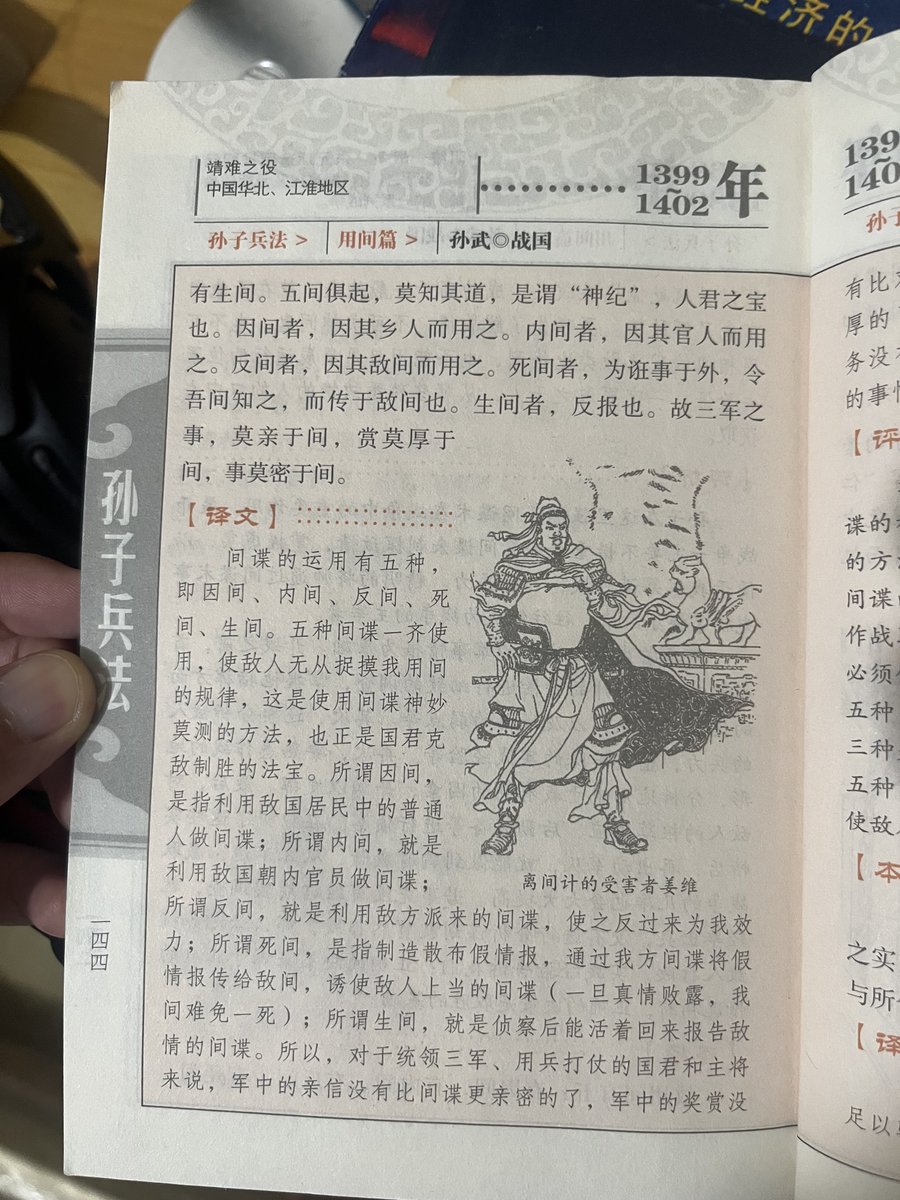 经济的
靖难之役
中国华北、江淮地区
1399~1402年
孙子兵法 >
用间篇 >
孙武◎战国
有生间。五间俱起，莫知其道，是谓“神纪”，人君之宝
也。因间者，因其乡人而用之。内间者，因其官人而用
之。反间者，因其敌间而用之。死间者，为诳事于外，令
吾间知之，而传于敌间也。生间者，反报也。故三军之
事，莫亲于间，赏莫厚于
间，事莫密于间。
【译文】
间谍的运用有五种，
即因间、内间、反间、死
间、生间。五种间谍一齐使
用，使敌人无从捉摸我用间
的规律，这是使用间谍神妙
莫测的方法，也正是国君克
敌制胜的法宝。所谓因间，
是指利用敌国居民中的普通
人做间谍；所谓内间，就是
利用敌国朝内官员做间谍；
所谓反间，就是利用敌方派来的间谍，使之反过来为我效
力；所谓死间，是指制造散布假情报，通过我方间谍将假
情报传给敌间，诱使敌人上当的间谍（一旦真情败露，我
间难免一死）；所谓生间，就是侦察后能活着回来报告敌
情的间谍。所以，对于统领三军、用兵打仗的国君和主将
来说，军中的亲信没有比间谍更亲密的了，军中的奖赏没
离间计的受害者姜维
孙子兵法
一四四
139
140
孙子
有比
厚的
务没有
的事情
【评
谍的
的方法
间谍
作战
必须
五种
三种
五种
使敌
【本
之实
与所
【译
足以